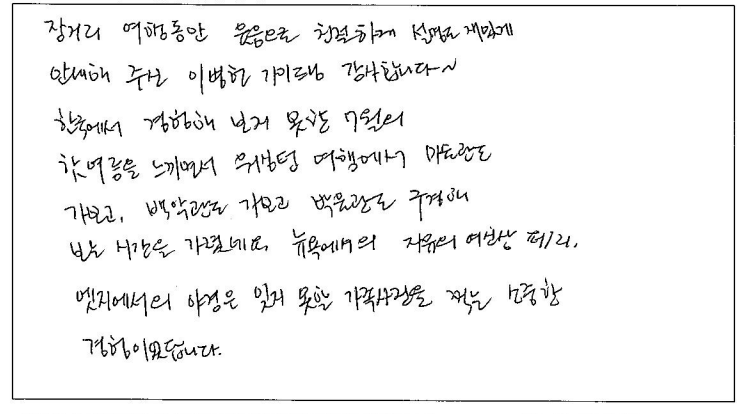 장거리 여행동안 웃음으로 친절하게 설명도 재밌게
안내해 주신 이병헌 가이드님 감사합니다~
한국에서 경험해 보지 못한 7월의
한여름을 느끼면서 워싱턴 여행에서
가보고, 백악관도 가보고 박물관도 구경해
보는 시간을 가졌네요. 뉴욕에서의 자유의 여신상 페리,
엣지에서의 야경은 잊지 못할 가족사진을 찍는 소중한
경험이었답니다.